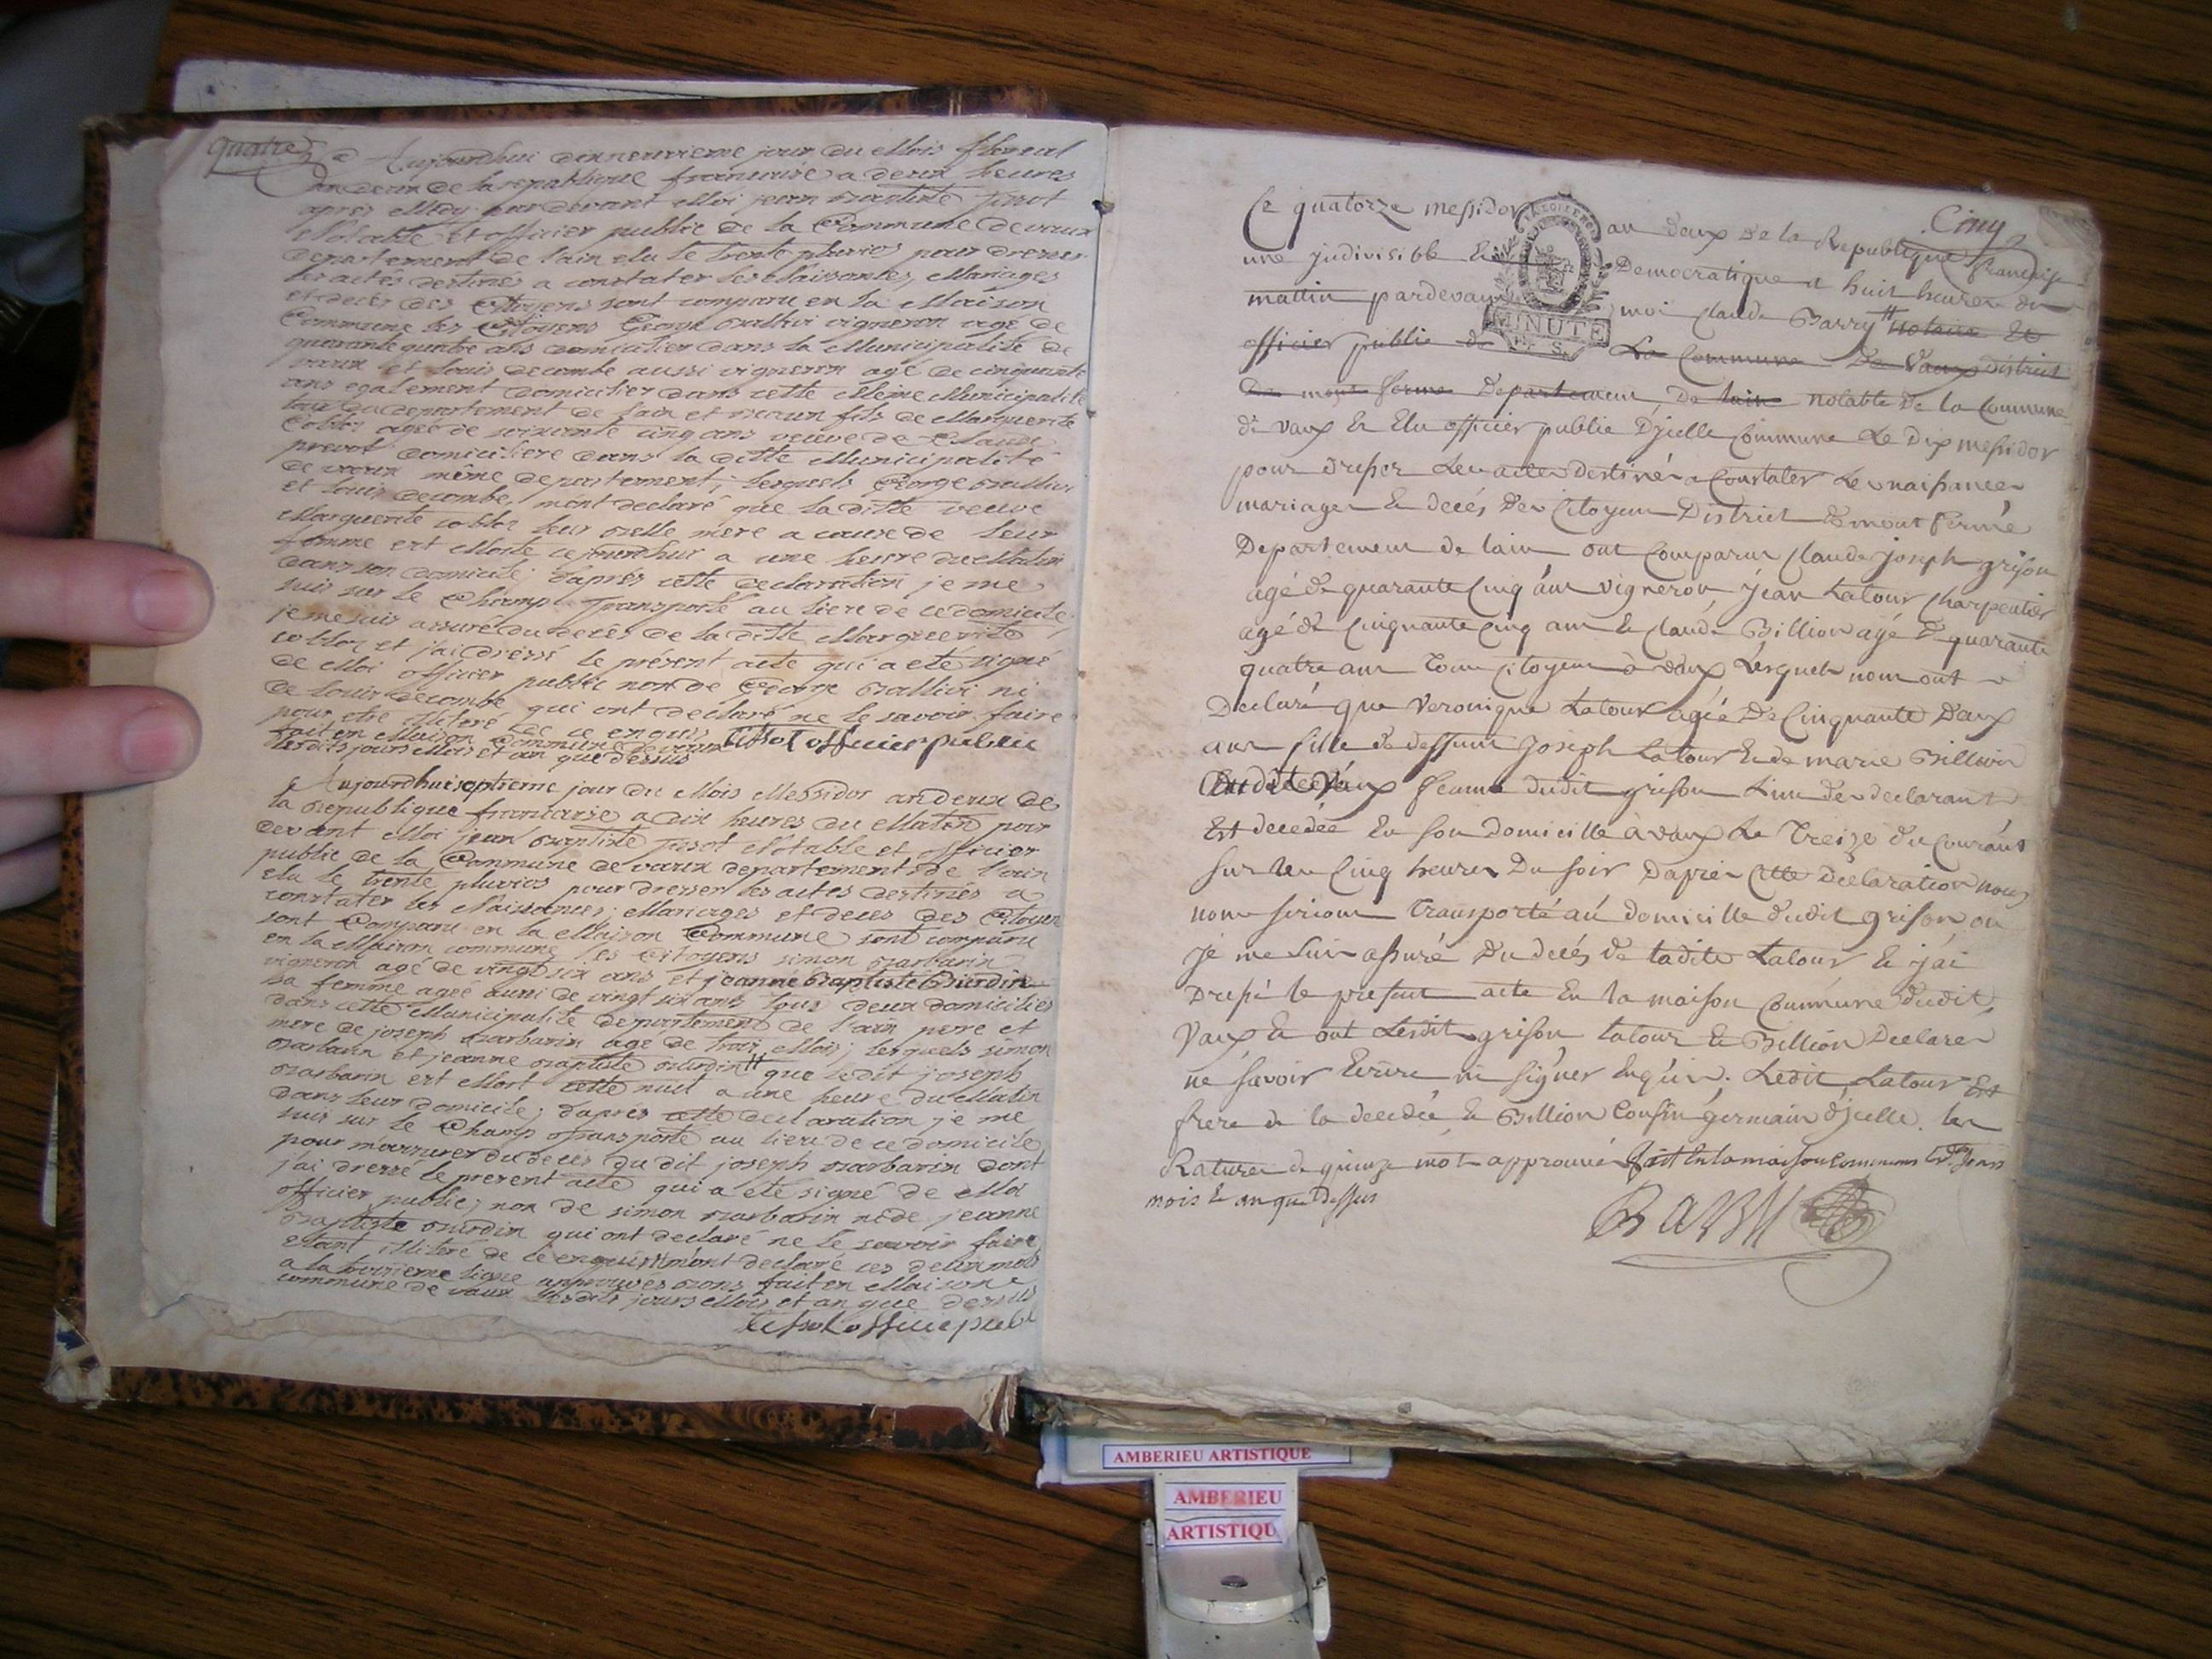 quatre
Aujourdhui dixneuvieme jour du Mois floreal
an deux de la republique francaise a deux heures
après Midy pardevant Moi jean baptiste tissot
Notable et officier public de la Commune de vaux
departement de lain elu le trente pluvios pour dresser
les actes destinés a constater les Naissances, Mariages
et deces des Citoyens sont comparu en la Maison
Commune les Citoyens George ballivi vigneron agé de
quarante quatre ans domicilier dans la Municipalité de
vaux et louis decombe aussi vigneron agé de cinquante
ans egalement domicilier dans cette Même Municipalité
departement de lain et fils de Marguerite
agée de soixante cinq ans veuve de Claude
prevot domiciliere dans la ditte Municipalité
de vaux même departement; lesquels George ballivi
et louis decombe, mont declaré que la ditte veuve
Marguerite leur belle mere a cause de leur
femme est Morte cejourdhui a une heure du Matin
dans son domicile; daprès cette declaration je me
suis sur le Champ transporté au lieu de ce domicile,
je me suis assuré du decès de la ditte Marguerite
et j'ai dressé le présent acte qui a eté signé
de Moi officier public non de George ballivi ni
de louis decombe qui ont declaré ne le savoir faire
pour etre illiteré de ce enquis
fait en Maison Commune de vaux tissot officier public
lesdits jours Mois et an que dessus
Aujourdhui septieme jour du Mois Messidor an deux de
la republique francaise a dix heures du Matin par
devant Moi jean baptiste tissot Notable et officier
public de la Commune de vaux departement de l'ain
elu le trente pluvios pour dresser les actes destinés a
constater les Naissances; Mariages et deces des Citoyens
sont Comparu en la Maison Commune sont comparu
en la Maison commune les citoyens simon barbarin
vigneron agé de vingt six ans et jeanne baptiste burdin
sa femme ageé aussi de vingt six ans tous deux domiciliés
dans cette Municipalité departement de l'ain pere et
mere de joseph barbarin age de trois Mois; lesquels simon
barbarin et jeanne baptiste burdin # que ledit joseph
barbarin est Mort cette nuit a une heure du Matin
dans leur domicile; daprés cette declaration je me
suis sur le Champ transporté au lieu de ce domicile
pour m'assurer du deces du dit joseph barbarin dont
j'ai dressé le present acte qui a eté signé de Moi
officier public; non de simon barbarin ni de jeanne
baptiste burdin qui ont declaré ne le savoir faire
etant illiteré de ce enquis # m'ont declaré ces deux mots
a la ligne approuvés bons fait en Maison
commune de vaux lesdits jours Mois et an que dessus
tissot officie publ
Cinq
Ce quatorze messidor an deux de la Republique françoise
une jndivisible Et Democratique a huit heures du
mattin pardevant moi Claude Barry # notaire Et
officier public de La Commune De Vaux district
De mont ferme Departement De lain notable De la Commune
de vaux Et Elu officier public Djcelle Commune Le Dix messidor
pour dresser Les actes destinés a Constater Les naissances
mariages Et decés Des Citoyens District de mont fermé
Departement de lain ont Comparus Claude joseph grison
agé de quarante Cinq ans vigneron, jean Latour Charpentier
agé de Cinquante Cinq ans Et Claude Billion agé de quarante
quatre ans tous Citoyens à vaux Lesquels nous ont
Declaré que veronique Latour agée De Cinquante Deux
ans fille de deffunt Joseph Latour Et de marie Billion
dudit vaux femme dudit grison Lun des declarants
Est decedée En son domicille à vaux Le treize du Courant
sur les Cinq heures Du soir Daprés Cette Declaration nous
nous serions transporté au domicille dudit grison ou
Je me suis assuré Du decés de ladite Latour Et j'ai
Dressé le present acte En la maison Commune dudit
Vaux Et ont Lesdit grison Latour Et Billion Declarer
ne savoir Ecrire ni signer Enquis. Ledit Latour Est
frere de la decedée Et Billion Cousin germain djcelle. les
Ratures de quinze mots approuvé fait En la maison Commune Lesd. Jours
mois Et an que Dessus
BARRY
MINUTE
AMBERIEU ARTISTIQUE
AMBERIEU
ARTISTIQU